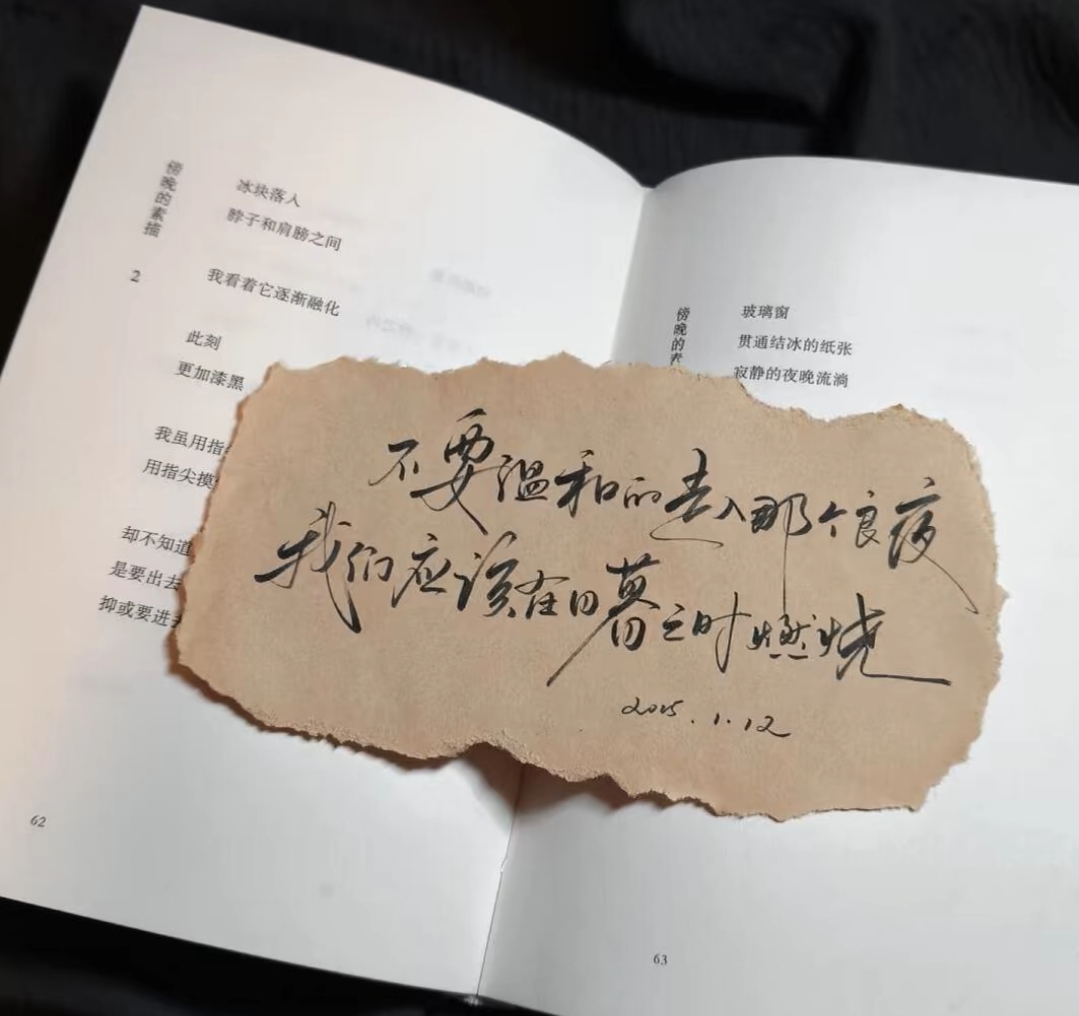 傍晚的素描
2
冰块落入
脖子和肩膀之间
我看着它逐渐融化
此刻
更加漆黑
我虽用指
用指尖摸
却不知道
是要出去
抑或要进
62
傍晚的
玻璃窗
贯通结冰的纸张
寂静的夜晚流淌
63
不要温和的走入那个良夜
我们应该在日暮之时燃烧
2025.1.12